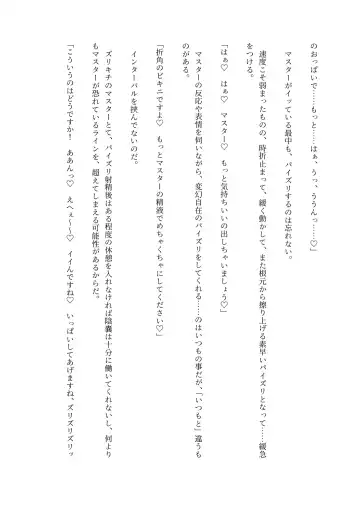 のおっぱいで……もっと……はぁ、うっ、ううんっ……♡」
マスターがイッている最中も、パイズリするのは忘れない。
速度こそ弱まったものの、時折止まって、緩く動かして、また根元から擦り上げる素早いパイズリとなって……緩急
をつける。
「はぁ♡　はぁ♡　マスター♡　もっと気持ちいいの出しちゃいましょう♡」
マスターの反応や表情を伺いながら、変幻自在のパイズリをしてくれる……のはいつもの事だが、「いつもと」違うも
のがある。
「折角のビキニですよ♡　もっとマスターの精液でめちゃくちゃにしてください♡」
インターバルを挟んでないのだ。
ズリキチのマスターとて、パイズリ射精後はある程度の休憩を入れなければ陰嚢は十分に働いてくれないし、何より
もマスターが恐れているラインを、超えてしまえる可能性があるからだ。
「こういうのはどうですか！　ああんっ♡　えへぇ～～♡　イイんですね♡　いっぱいしてあげますね、ズリズリズリっ